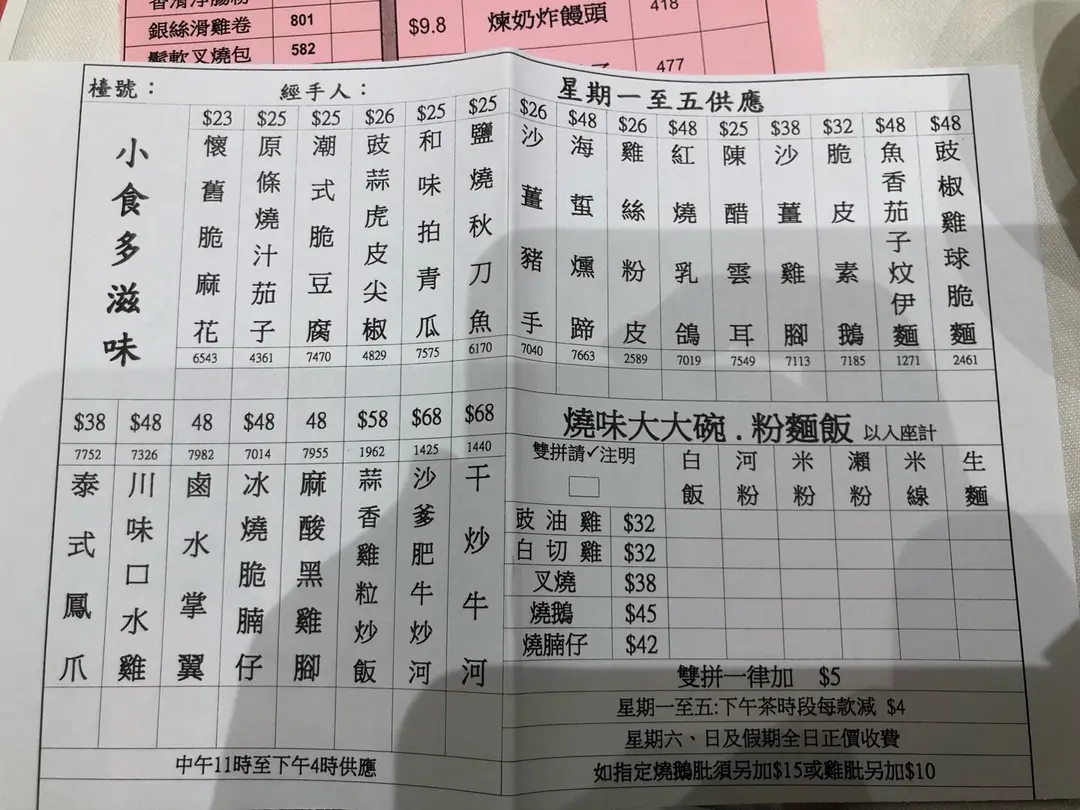 銀絲滑雞卷 801
鬆軟叉燒包 582
$9.8 煉奶炸饅頭 418
477
檯號：
經手人：
星期一至五供應
小食多滋味
$23 懷舊脆麻花 6543
$25 原條燒汁茄子 4361
$25 潮式脆豆腐 7470
$26 豉蒜虎皮尖椒 4829
$25 和味拍青瓜 7575
$25 鹽燒秋刀魚 6170
$26 沙薑豬手 7040
$48 海蜇燻蹄 7663
$26 雞絲粉皮 2589
$48 紅燒乳鴿 7019
$25 陳醋雲耳 7549
$38 沙薑雞腳 7113
$32 脆皮素鵝 7185
$48 魚香茄子炆伊麵 1271
$48 豉椒雞球脆麵 2461
$38 7752 泰式鳳爪
$48 7326 川味口水雞
48 7982 鹵水掌翼
$48 7014 冰燒脆腩仔
48 7955 麻酸黑雞腳
$58 1962 蒜香雞粒炒飯
$68 1425 沙爹肥牛炒河
$68 1440 干炒牛河
中午11時至下午4時供應
燒味大大碗．粉麵飯 以入座計
雙拼請✓注明
白飯 河粉 米粉 瀨粉 米線 生麵
豉油雞 $32
白切雞 $32
叉燒 $38
燒鵝 $45
燒腩仔 $42
雙拼一律加 $5
星期一至五:下午茶時段每款減 $4
星期六、日及假期全日正價收費
如指定燒鵝肶須另加$15或雞肶另加$10